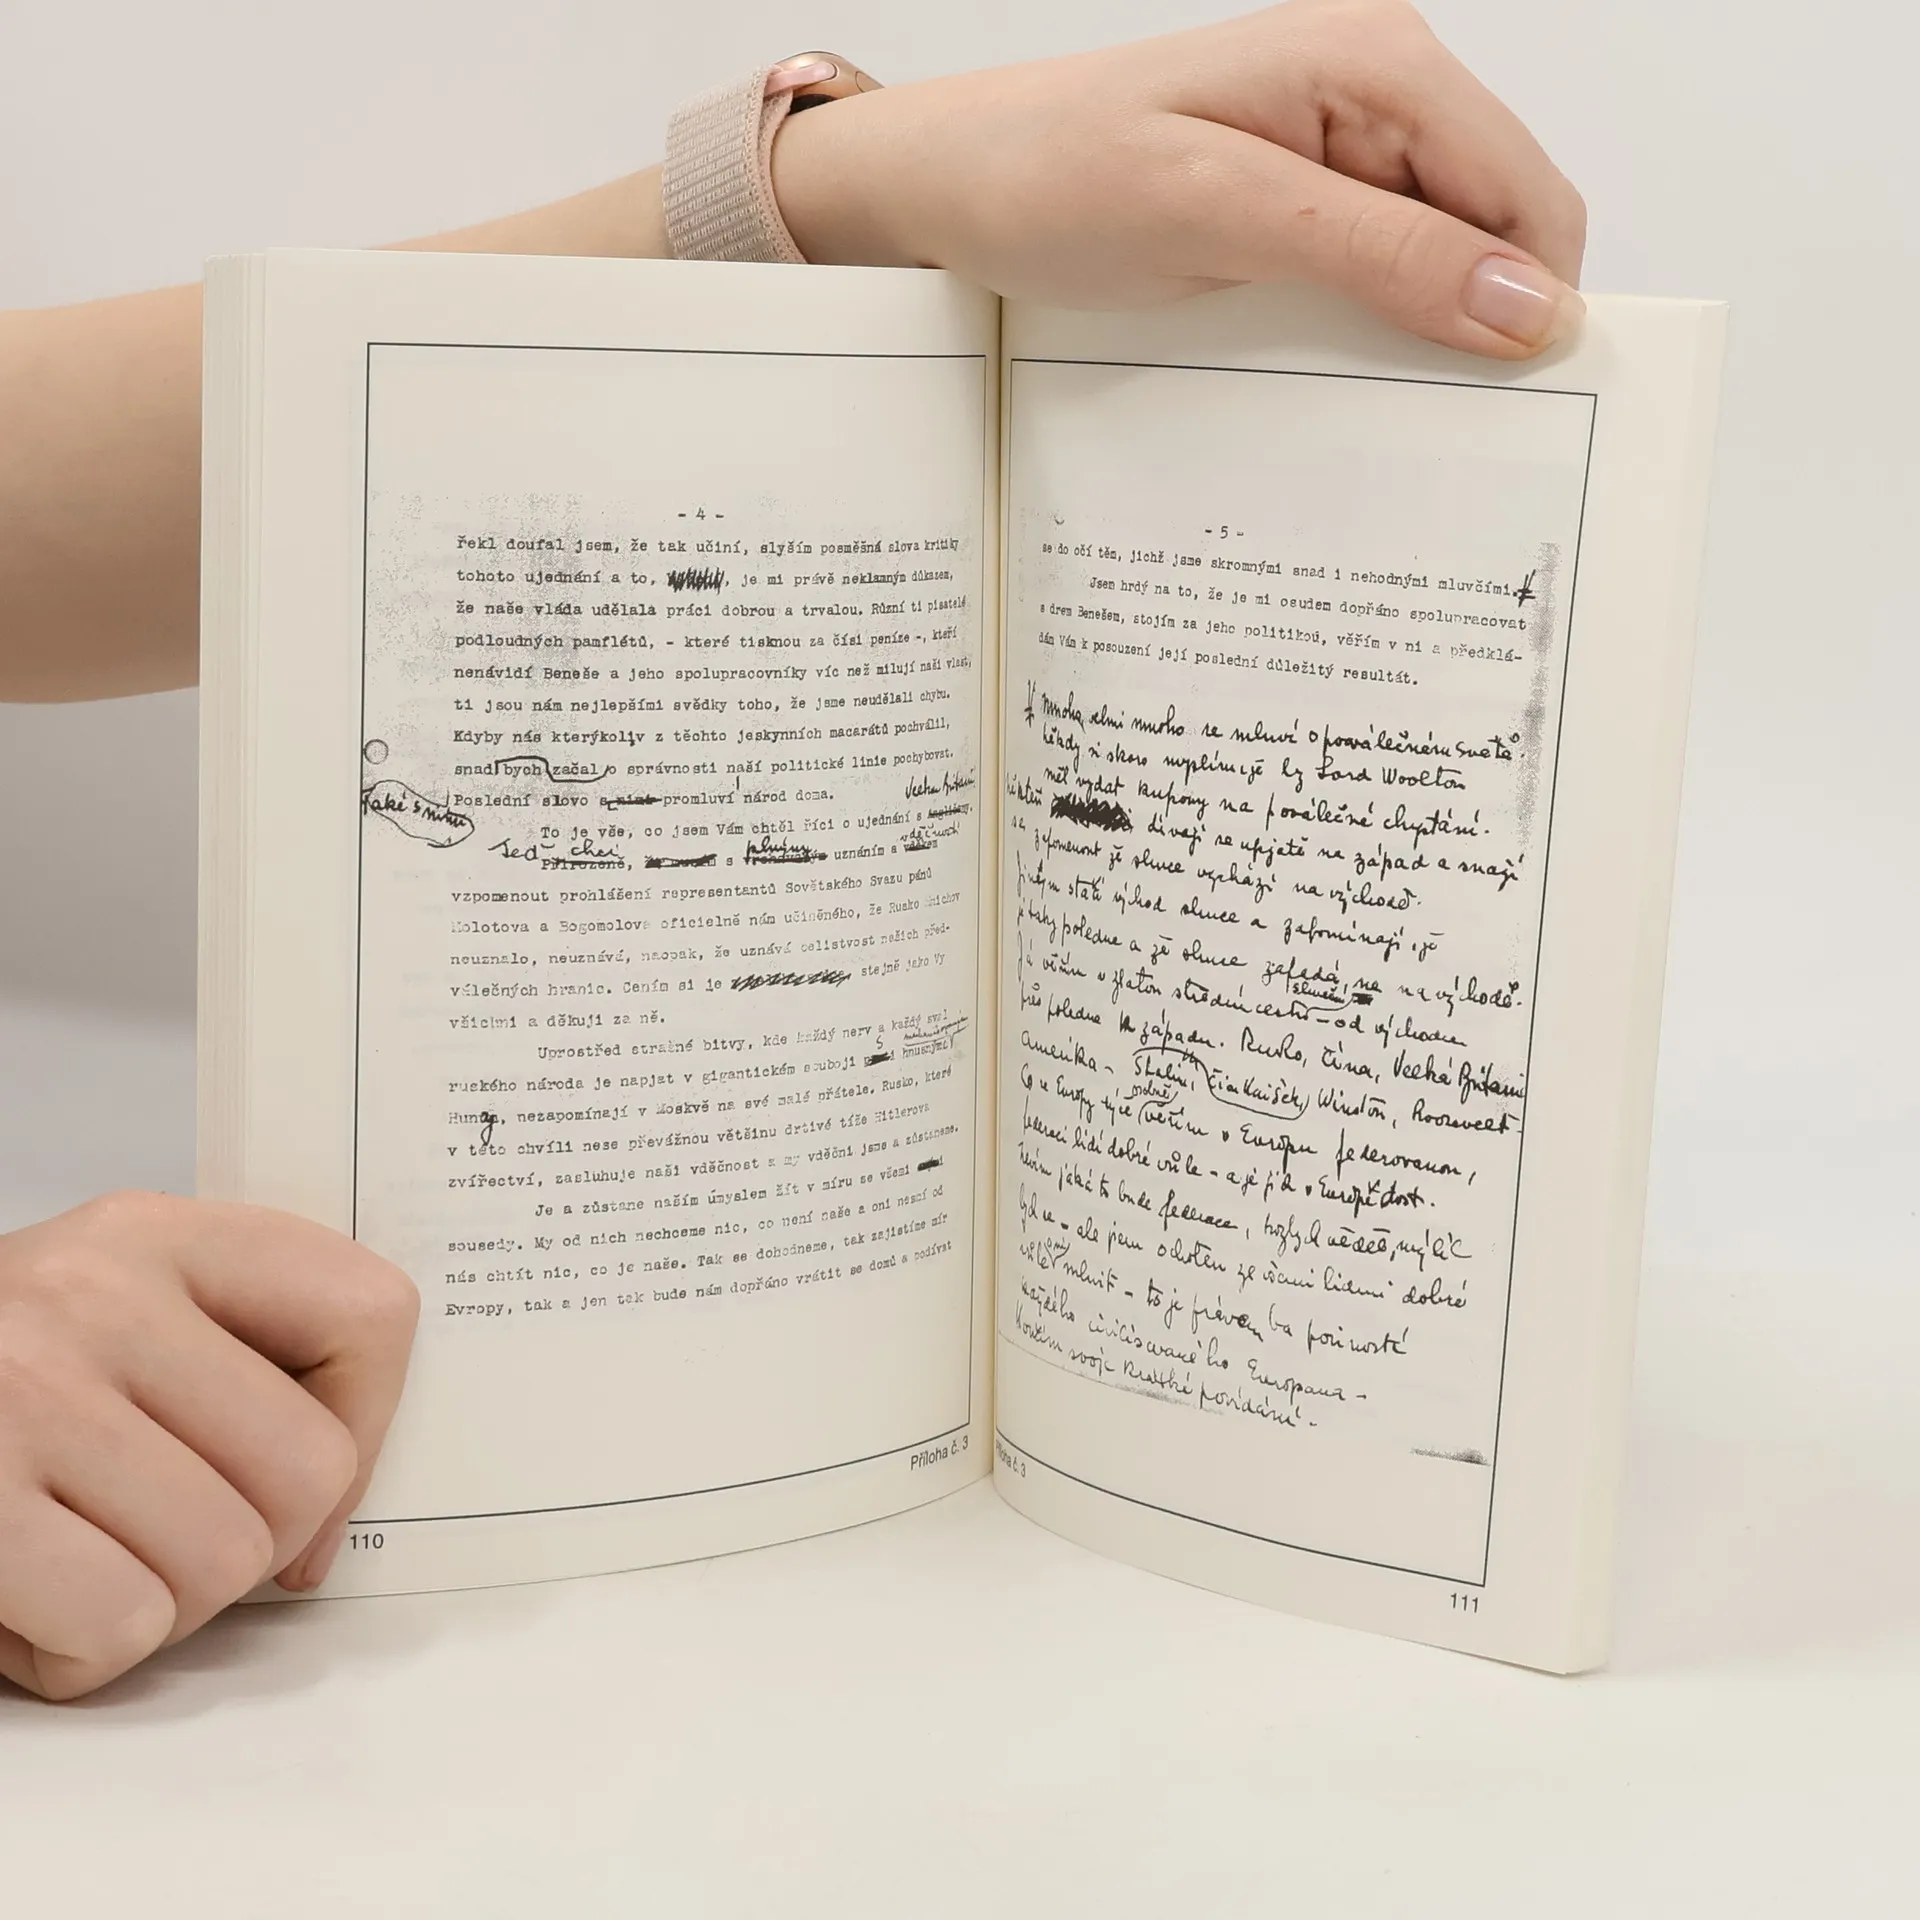 - 4 -
řekl doufal jsem, že tak učiní, slyším posměšná slova kritiky
tohoto ujednání a to, , je mi právě neklamným důkazem,
že naše vláda udělala práci dobrou a trvalou. Různí ti pisatelé
podloudných pamflétů, - které tisknou za čísi peníze -, kteří
nenávidí Beneše a jeho spolupracovníky víc než milují naši vlast,
ti jsou nám nejlepšími svědky toho, že jsme neudělali chybu.
Kdyby nás kterýkoliv z těchto jeskynních macarátů pochválil,
snad bych začal o správnosti naší politické linie pochybovat.
Také s nimi
Poslední slovo s nimi promluví národ doma.
Velkou Británií
To je vše, co jsem Vám chtěl říci o ujednání s Angličany.
Teď chci plným vděčností
Přirozeně, s uznáním a vděkem
vzpomenout prohlášení representantů Sovětského Svazu pánů
Molotova a Bogomolova oficielně nám učiněného, že Rusko Mnichov
neuznalo, neuznává, naopak, že uznává celistvost našich před-
válečných hranic. Cením si je stejně jako Vy
všichni a děkuji za ně.
Uprostřed strašné bitvy, kde každý nerv a každý sval
ruského národa je napjat v gigantickém souboji s hnusnými
Huny, nezapomínají v Moskvě na své malé přátele. Rusko, které
v této chvíli nese převážnou většinu drtivé tíže Hitlerova
zvířectví, zasluhuje naši vděčnost a my vděčni jsme a zůstaneme.
Je a zůstane naším úmyslem žít v míru se všemi
sousedy. My od nich nechceme nic, co není naše a oni nesmí od
nás chtít nic, co je naše. Tak se dohodneme, tak zajistíme mír
Evropy, tak a jen tak bude nám dopřáno vrátit se domů a podívat
Příloha č. 3
110
- 5 -
se do očí těm, jichž jsme skromnými snad i nehodnými mluvčími.
Jsem hrdý na to, že je mi osudem dopřáno spolupracovat
s drem Benešem, stojím za jeho politikou, věřím v ni a předklá-
dám Vám k posouzení její poslední důležitý resultát.
Mnoho, velmi mnoho se mluví o poválečném světě.
Někdy si skoro myslím, že by Lord Woolton
měl vydat kupony na poválečné chystání.
Někteří dívají se upjatě na západ a snaží
se zapomenout že slunce vychází na východě.
Jiným stačí východ slunce a zapomínají, že
je taky poledne a že slunce zapadá, ne na východě.
Já věřím v zlatou střední cestu sluneční - od východu
přes poledne k západu. Rusko, Čína, Velká Británie
Amerika - Stalin, Čiankaišek, Winston, Roosevelt -
Co se Evropy týče osobně věřím v Evropu federovanou,
federaci lidí dobré vůle - a je jich v Evropě dost.
Nevím jaká to bude federace, kdybych věděl, mýlil
bych se - ale jsem ochoten ze všemi lidmi dobré
vůle o ní mluvit - to je právem ba povinností
každého civilisovaného Evropana -
Končím svoje krátké povídání. -
Příloha č. 3
111